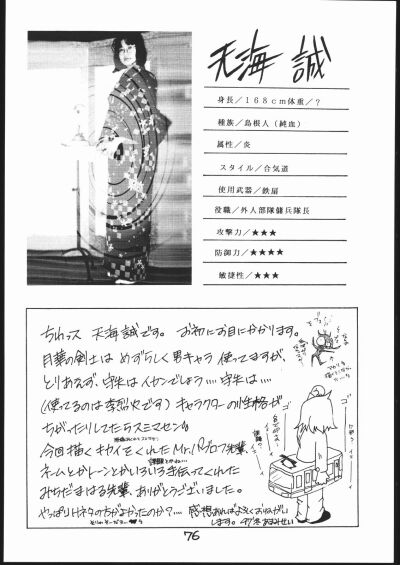 天海 誠
身長／１６８ｃｍ体重／？
種族／島根人（純血）
属性／炎
スタイル／合気道
使用武器／鉄扇
役職／外人部隊傭兵隊長
攻撃力／★★★
防御力／★★★★
敏捷性／★★★
ちわっス 天海誠です。お初にお目にかかります。
月華の剣士は めずらしく男キャラ 使ってますが、
とりあえず、守矢は イカンでしょう‥‥守矢は‥‥
（使ってるのは李烈火です）キャラクターの性格が
ちがったりしてたらスミマセン
今回描くキカイをくれたMr.パブロフ先輩、
ネームとかトーンとかいろいろ手伝ってくれた
みちだまはる先輩、ありがとうございました。
やっぱりHネタの方がよかったのか？‥‥感想あればよろしくおねがい
します。'97冬 あまみせい
76